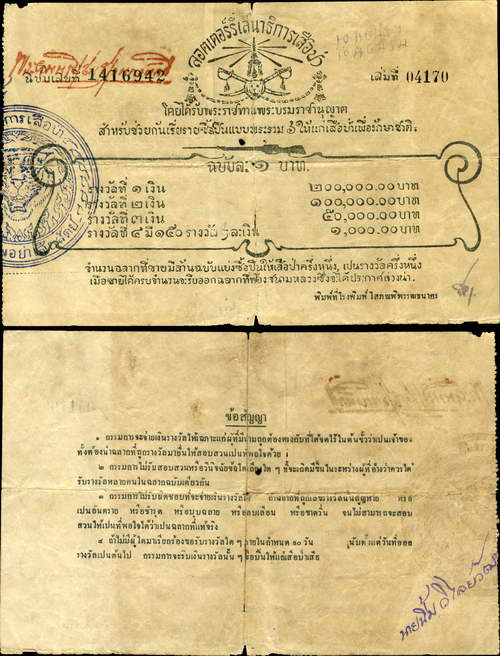 ลอตเตอรี่เสนาธิการเสือป่า
ฉบับเลขที่ 1416942
เล่มที่ 04170
โดยได้รับพระราชทานพระบรมราชานุญาต
สำหรับช่วยกันเรี่ยรายซื้อปืนแบบพระราม ๖ ให้แก่เสือป่าเพื่อรักษาชาติ
ฉบับละ ๑ บาท
รางวัลที่ ๑ เงิน ๒๐๐,๐๐๐.๐๐ บาท
รางวัลที่ ๒ เงิน ๑๐๐,๐๐๐.๐๐ บาท
รางวัลที่ ๓ เงิน ๕๐,๐๐๐.๐๐ บาท
รางวัลที่ ๔ มี ๑๕๐ รางวัล ๆ ละเงิน ๑,๐๐๐.๐๐ บาท
จำนวนฉลากที่ขายมีล้านฉบับแบ่งซื้อปืนให้เสือป่าครึ่งหนึ่ง, เปนรางวัลครึ่งหนึ่ง
เมื่อขายได้ครบจำนวนจะรีบออกฉลากที่ท้องสนามหลวงซึ่งจะได้ประกาศล่วงน่า.
พิมพ์ที่โรงพิมพ์โสภณพิพรรฒธนากร
ข้อสัญญา
๑ กรรมการจะจ่ายเงินรางวัลให้ฉะเพาะแก่ผู้ที่มีนามถูกต้องตรงกับที่ได้จดไว้ในต้นขั้วว่าเปนเจ้าของ
ทั้งต้องนำฉลากที่ถูกรางวัลมายื่นให้สอบสวนเปนที่พอใจด้วย
๒ กรรมการไม่รับสอบสวนหรือวินิจฉัยข้อ ใด ๆ ที่จะเกิดมีขึ้นในระหว่างผู้ที่อ้างว่าควรได้
รับรางวัลหลายคนในฉลากฉบับเดียวกัน
๓ กรรมการไม่รับผิดชอบที่จะจ่ายเงินรางวัลให้ ถ้าฉลากที่ถูกเลขรางวัลนั้นสูญหาย หรือ
เปนอันตราย หรือชำรุด หรือบุบฉลาย หรือลบเลือน หรือขาดวิ่น จนไม่สามารถจะสอบ
สวนให้เปนที่พอใจได้ว่าเปนฉลากที่แท้จริง
๔ ถ้าไม่มีผู้ใดมาเรียกร้องขอรับรางวัลใด ๆ ภายในกำหนด ๙๐ วัน นับตั้งแต่วันที่ออก
รางวัลเปนต้นไป กรรมการจะริบเงินรางวัลนั้น ๆ ซื้อปืนให้แก่เสือป่าเสีย